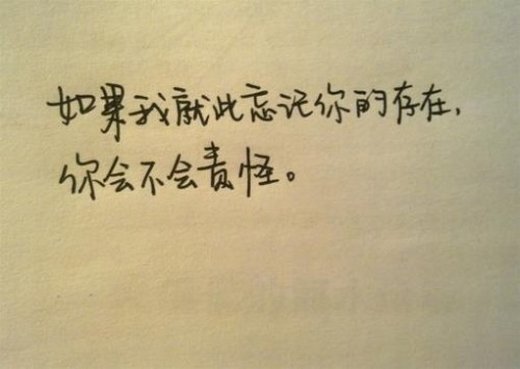 如果我就此忘记你的存在,
你会不会责怪。